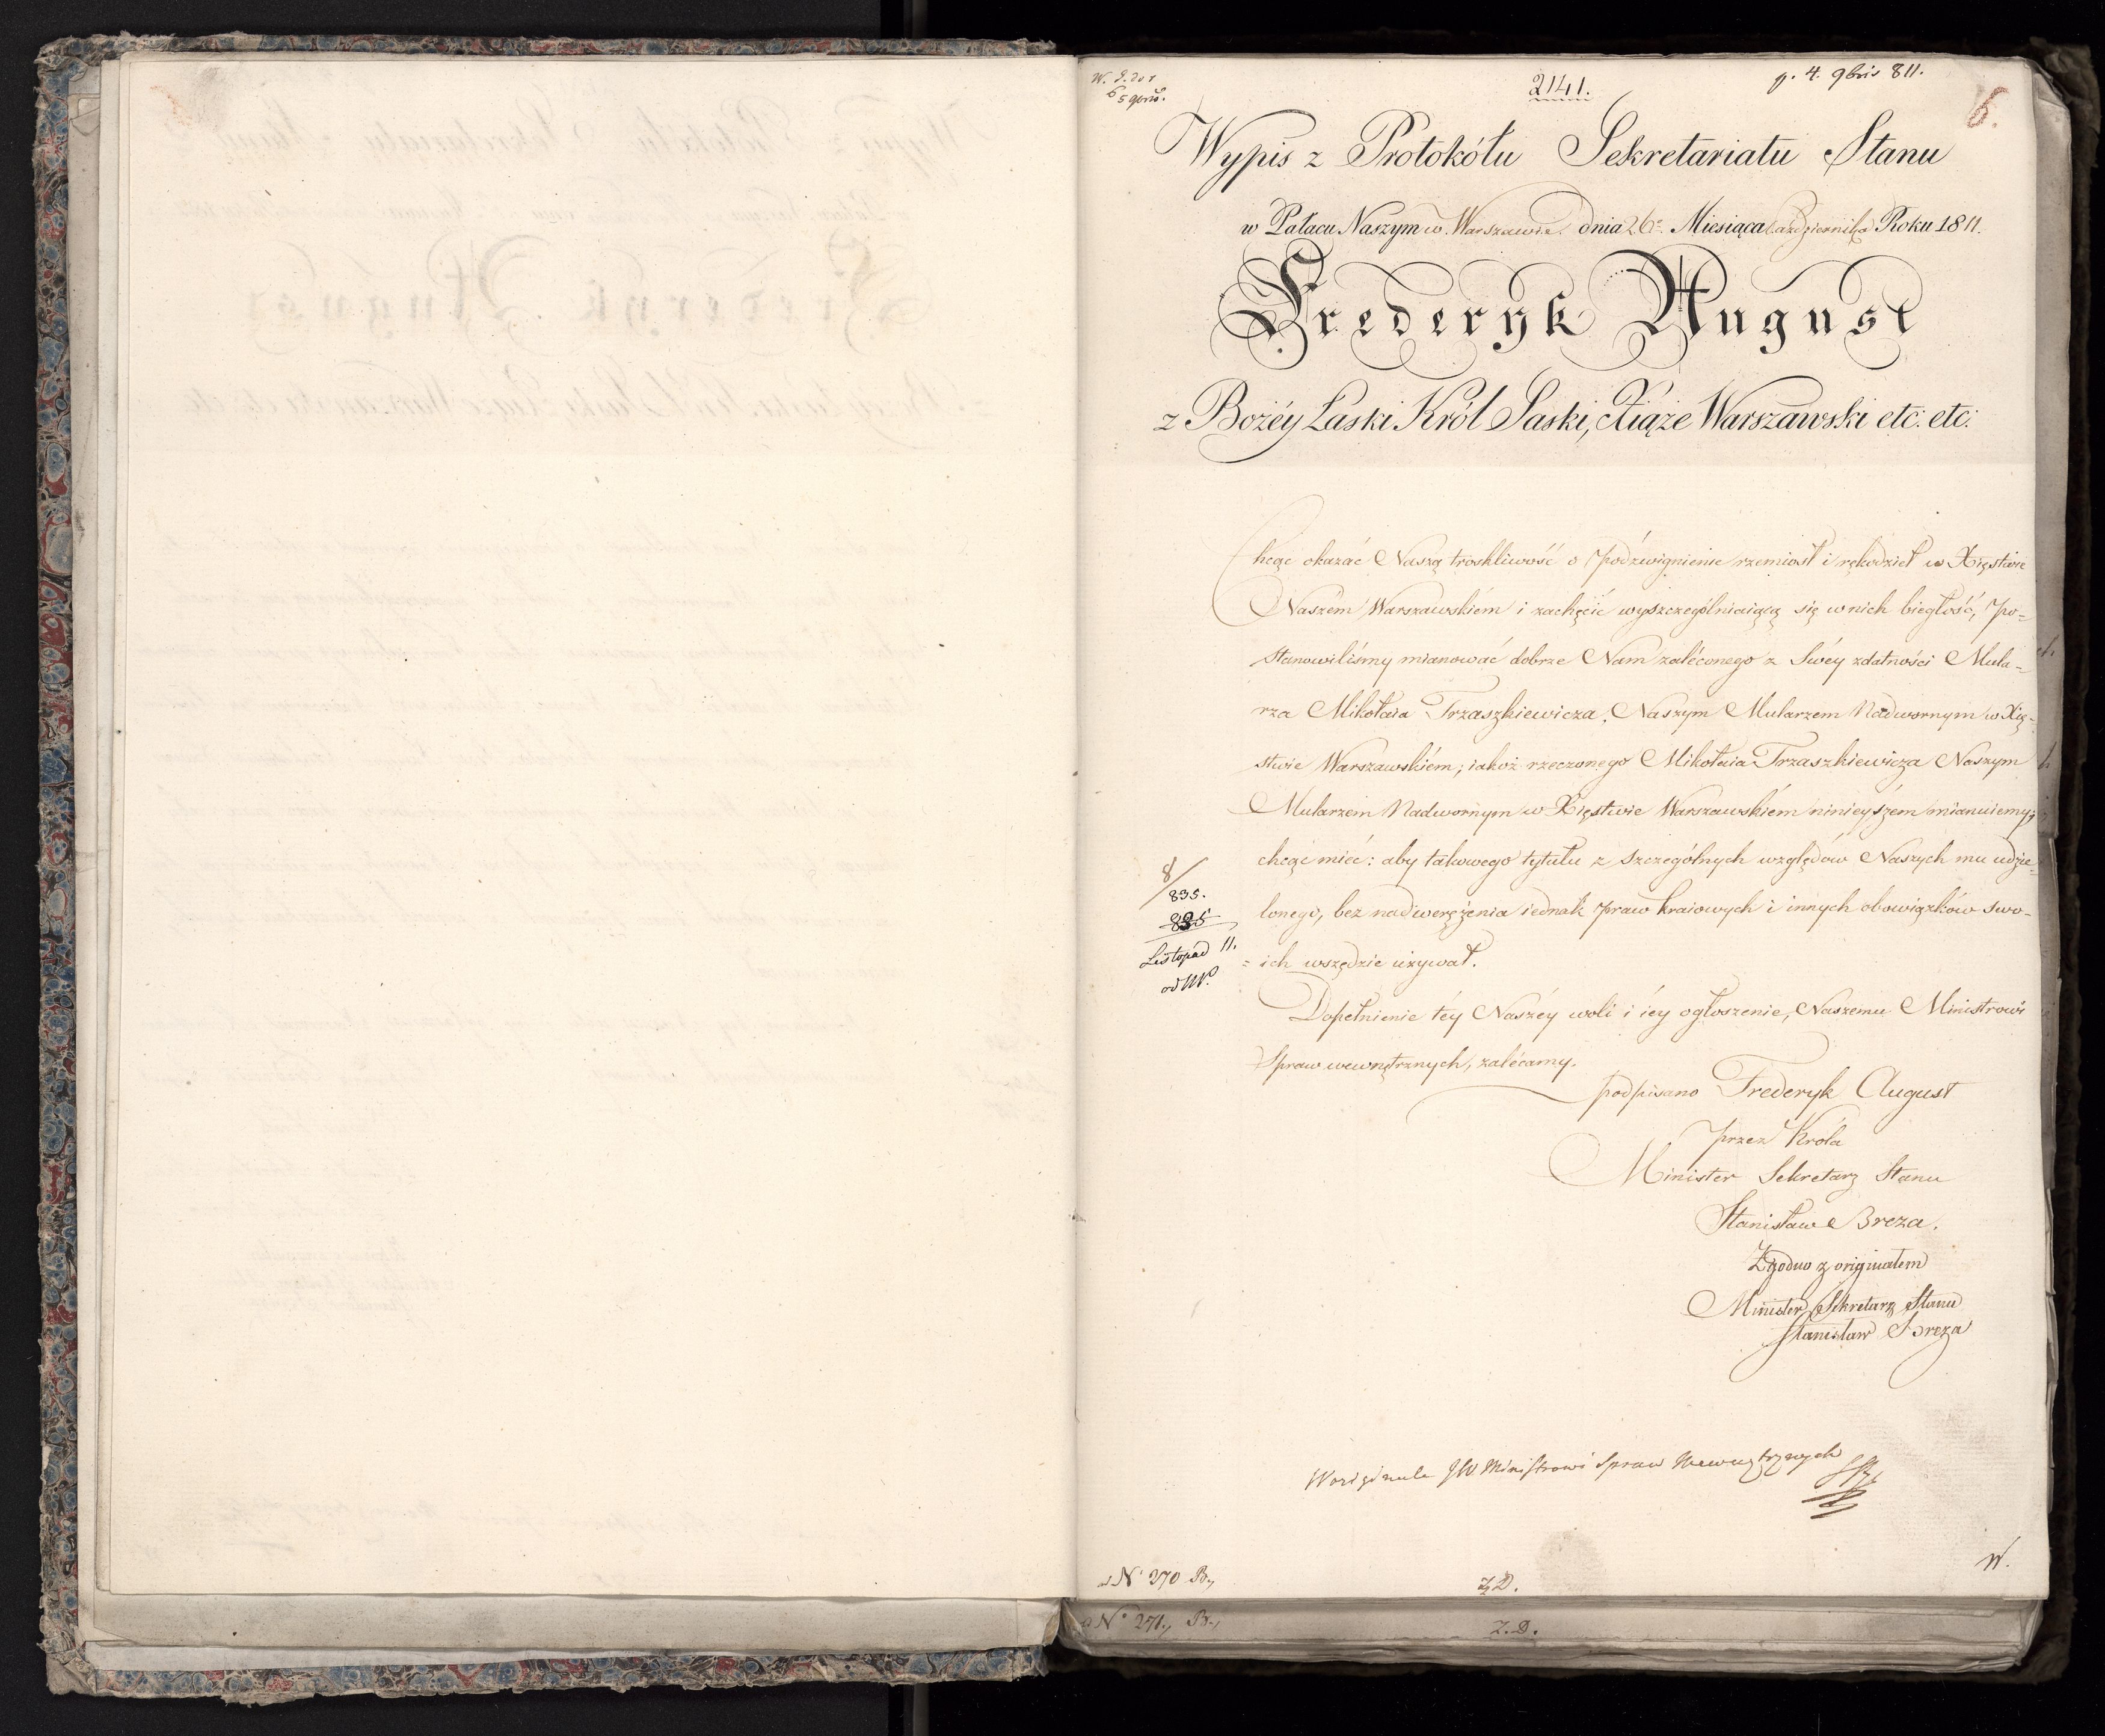 2141.
p. 4. 9bris 811.
6.
Wypis z Protokółu Sekretariatu Stanu
w Pałacu Naszym w Warszawie dnia 26º Miesiąca Października Roku 1811.
Frederyk August
z Bożéy Łaski Król Saski, Xiąże Warszawski etc: etc:
Chcąc okazać Naszą troskliwość o podźwignienie rzemiosł i rękodzieł w Xięstwie
Naszém Warszawskiém i zachęcić wyszczególniaiącą się w nich biegłość, po=
stanowiliśmy mianować dobrze Nam zaleconego z Swéy zdatności Mula=
rza Mikołaia Trzaszkiewicza, Naszym Mularzem Nadwornym w Xię=
stwie Warszawskiém; iakoż rzeczonego Mikołaia Trzaszkiewicza Naszym
Mularzem Nadwornym w Xięstwie Warszawskiém ninieyszém mianuiemy;
chcąc mieć: aby takowego tytułu z szczególnych względów Naszych mu udzie=
lonego, bez nadwerężenia iednak praw kraiowych i innych obowiązków swo=
=ich wszędzie używał.
8/
835.
835
Listopad 11.
od W.
Dopełnienie téy Naszéy woli i iéy ogłoszenie, Naszemu Ministrowi
Spraw wewnętrznych, zalécamy.
podpisano Frederyk August
przez Króla
Minister Sekretarz Stanu
Stanisław Breza.
Zgodno z originałem
Minister Sekretarz Stanu
Stanisław Breza
W originale JW Ministrowi Spraw Wewnętrznych
W.
ad Nº 270 Br.
Z.D.
ad Nº 271. Br.
Z.D.